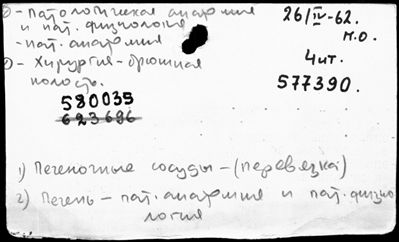 1) - Патологическая анатомия
и пат. физиология
- пат. анатомия
2) - Хирургия - брюшная
полость.
26/IV-62.
М.О.
Чит.
577390.
580035
623686
1) Печеночные сосуды - (перевязка)
2) Печень - пат. анатомия и пат. физио
логия